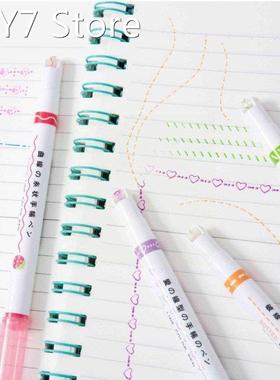 Y7 Store
曲線の糸状手帳ペン
愛の線型の手帳のペン